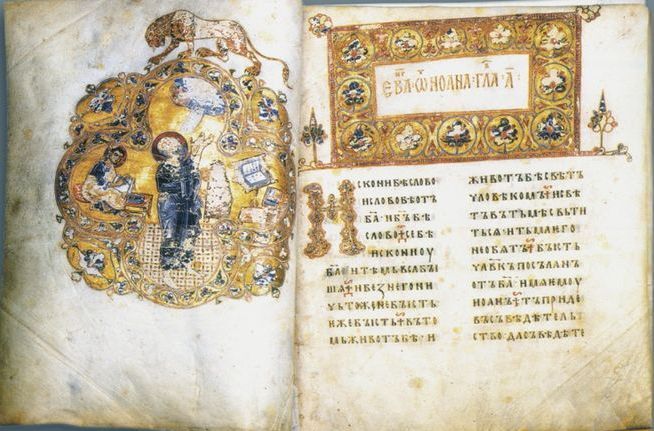 ЕВАⷢ҇·Ѿ ІОАНА·ГЛА·А҃·
ИСКОНИБѢСЛОВО
ИСЛОВОБѢОТЪ
Б҃АИБ҃ЪБѢ
СЛОВО⁘СЕБѢ
ИСКОНИОУ
Б҃АИТѢМЬВЬСꙖБЫ
ШѦИБЕЗНЕГОНИ
ЧЬТОЖЕНЕБЫСТЬ
ѤЖЕБЫСТЬ⁘ВЪТО
МЬЖИВОТЪБѢ·И
ЖИВОТЪБѢСВѢТЪ
ЧЛОВѢКОМЪ⁘ИСВѢ
ТЪВЪТЬМѢСВЬТИ
ТЬСѦИТЬМАѤГО
НЕОБѦТЪ⁘БЫСТЬ
ЧЛ҃ВКЪПОСЪЛАНЪ
ОТЪБ҃АИМѦѤМОУ
ИОАНЪ⁘ТЪПРИДЕ
ВЪСЪВѢДѢТЕЛЬ
СТВОДАСЪВѢДѢТЕ